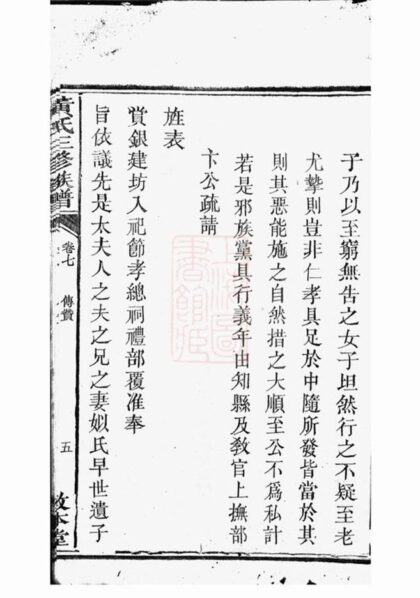 于乃以至窮無告之女子坦然行之不疑至老
尤摯則豈非仁孝具足於中隨所發皆當於其
則其惡能施之自然措之大順至公不爲私計
若是邪族黨具行義年由知縣及教官上撫部
卞公疏請
旌表
賞銀建坊入祀節孝總祠禮部覆准奉
旨依議先是太夫人之夫之兄之妻姒氏早世遺子
黃氏三修族譜
卷七
傳贊
五
敦本堂